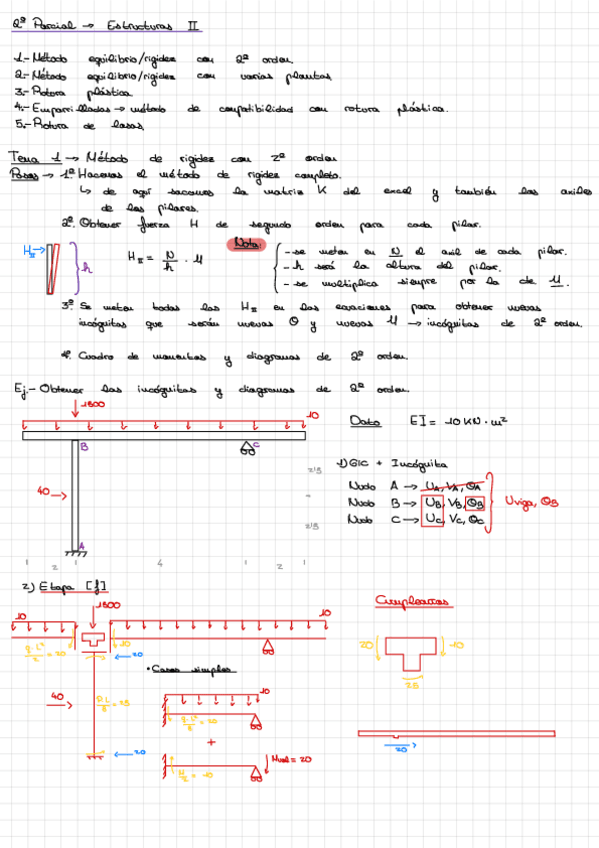 2º Parcial → Estructuras II
1.- Método equilibrio/rigidez con 2º orden.
2.- Método equilibrio/rigidez con varias plantas
3.- Rotura plástica.
4.- Emparrillados → método de compatibilidad con rotura plástica.
5.- Rotura de losas,
Tema 1 → Método de rigidez con 2º orden
Pasos → 1º. Hacemos el método de rigidez completo.
↳ de aquí sacamos la matriz K del excel y también los axiles
de los pilares.
2º. Obtener fuerza H de segundo orden para cada pilar.
H_II →
h
H_II = N/h · U
Nota:
- se meten en N el axil de cada pilar.
- h será la altura del pilar.
- se multiplica siempre por la de U.
3º. Se meten todas las H_II en las ecuaciones para obtener nuevas
incógnitas que serán nuevas Θ y nuevas U → incógnitas de 2º orden.
4º. Cuadro de momentos y diagramas de 2º orden.
Ej.- Obtener las incógnitas y diagramas de 2º orden.
1800
10
B
C
40 →
A
2
4
2
Dato EI = 10 KN·m²
1) GIC + Incógnita
Nudo A → U_A, V_A, Θ_A
Nudo B → U_B, V_B, Θ_B
Nudo C → U_C, V_C, Θ_C
Uviga, Θ_B
2) Etapa [f]
10
1800
10
q·L²/2 = 20
10
← 20
40
P·L/8 = 25
← 20
• Casos simples
10
q·L²/8 = 20
+
M/2 = -10
Mvol = 20
Cumpleaños
20
10
25
20